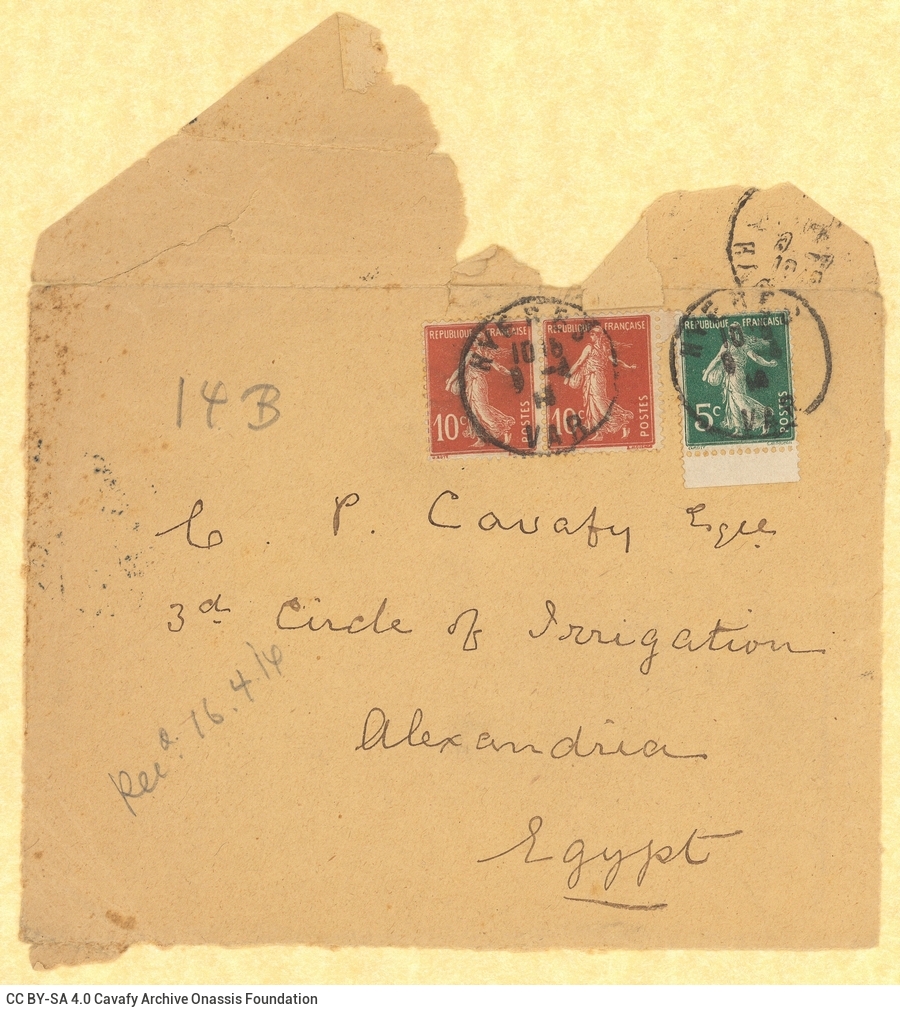 REPUBLIQUE FRANÇAISE
10c POSTES
REPUBLIQUE FRANÇAISE
10c POSTES
REPUBLIQUE FRANÇAISE
5c POSTES
HYERES
VAR
HYERES
VAR
14 B
C. P. Cavafy Esqre
3d Circle of Irrigation
Alexandria
Egypt
Recd. 16.4
CC BY-SA 4.0 Cavafy Archive Onassis Foundation